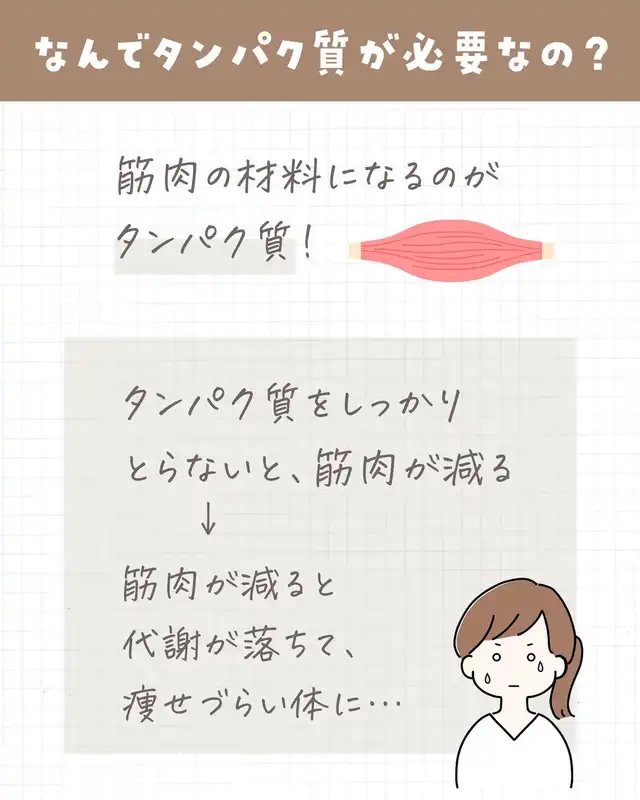 なんでタンパク質が必要なの？
筋肉の材料になるのが
タンパク質！
タンパク質をしっかり
とらないと、筋肉が減る
↓
筋肉が減ると
代謝が落ちて、
痩せづらい体に…